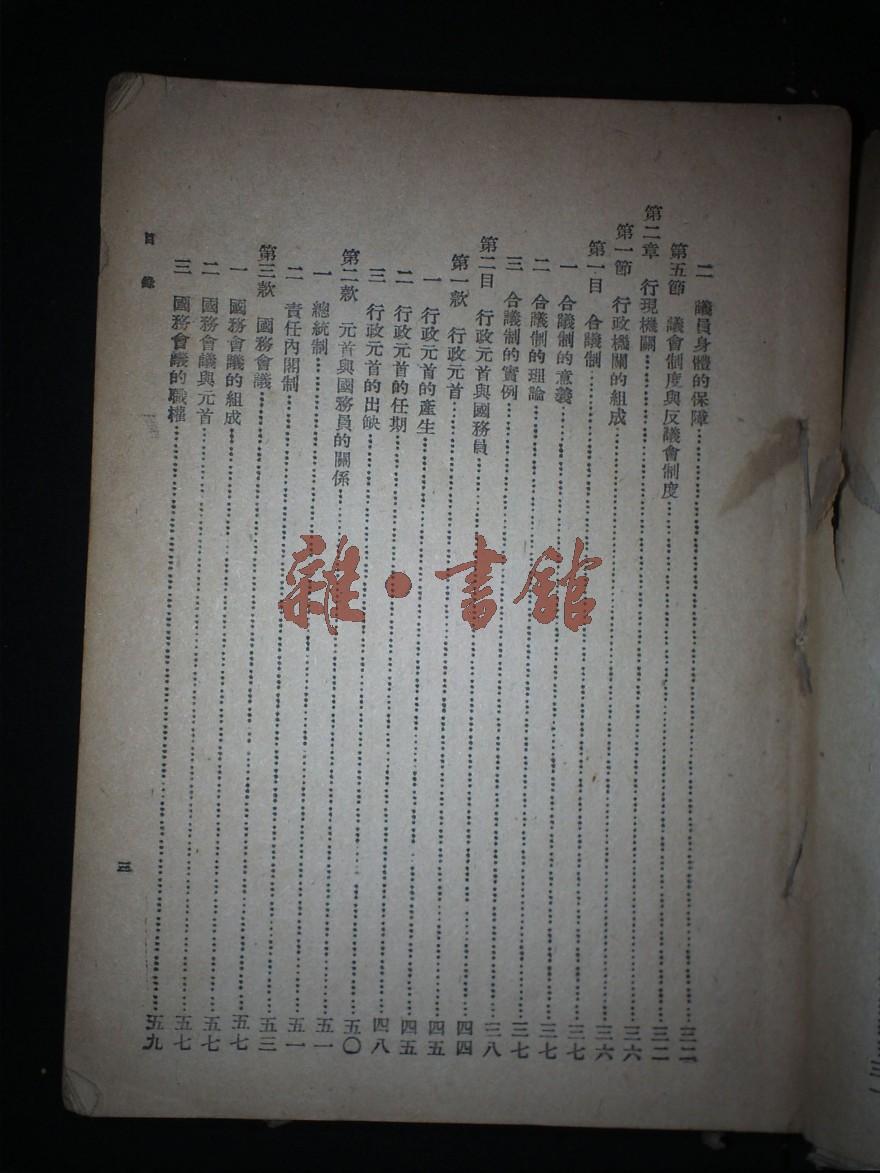 二 議員身體的保障……三二
第五節 議會制度與反議會制度……三二
第二章 行現機關……三六
第一節 行政機關的組成……三六
第一目 合議制……三七
一 合議制的意義……三七
二 合議制的理論……三七
三 合議制的實例……三八
第二目 行政元首與國務員……四四
第一款 行政元首……四五
一 行政元首的產生……四五
二 行政元首的任期……四八
三 行政元首的出缺……五〇
第二款 元首與國務員的關係……五一
一 總統制……五一
二 責任內閣制……五三
第三款 國務會議……五七
一 國務會議的組成……五七
二 國務會議與元首……五七
三 國務會議的職權……五九
目錄
三
雜·書館